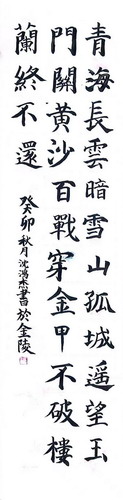 青海長雲暗雪山孤城遥望玉
門關黄沙百戰穿金甲不破樓
蘭終不還
癸卯秋月沈鴻杰書於金陵